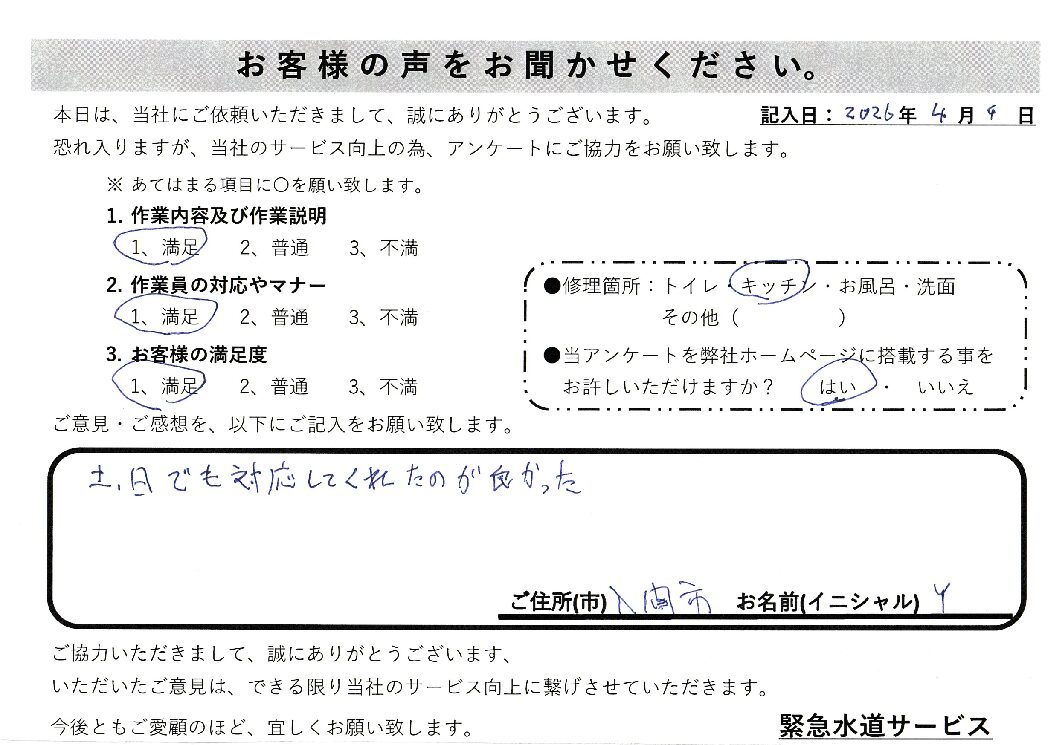 お客様の声をお聞かせください。
本日は、当社にご依頼いただきまして、誠にありがとうございます。
記入日：2026年 4月 9日
恐れ入りますが、当社のサービス向上の為、アンケートにご協力をお願い致します。
※ あてはまる項目に〇を願い致します。
1. 作業内容及び作業説明
1、満足　2、普通　3、不満
2. 作業員の対応やマナー
1、満足　2、普通　3、不満
3. お客様の満足度
1、満足　2、普通　3、不満
●修理箇所：トイレ・キッチン・お風呂・洗面
その他（　　　　　）
●当アンケートを弊社ホームページに搭載する事を
お許しいただけますか？　はい ・ いいえ
ご意見・ご感想を、以下にご記入をお願い致します。
土、日でも対応してくれたのが良かった
ご住所(市) 入間市　お名前(イニシャル) Y
ご協力いただきまして、誠にありがとうございます、
いただいたご意見は、できる限り当社のサービス向上に繋げさせていただきます。
今後ともご愛顧のほど、宜しくお願い致します。
緊急水道サービス